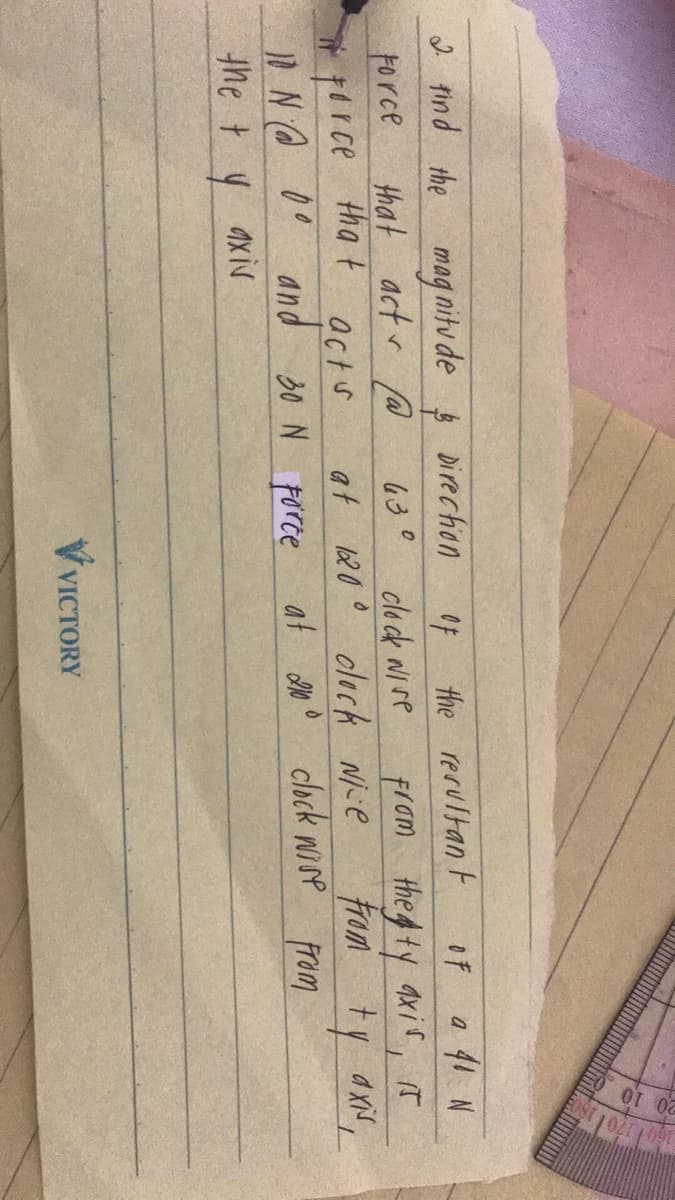 2. find the magnitude & Direction of the resultant of a 41 N
Force that acts @ 63° clockwise from the +y axis, 15
N force that acts at 120° clockwise from +y axis,
10 N @ 0° and 30 N Force at 210° clockwise from
the + y axis
VICTORY
20 10 0
160 170 180